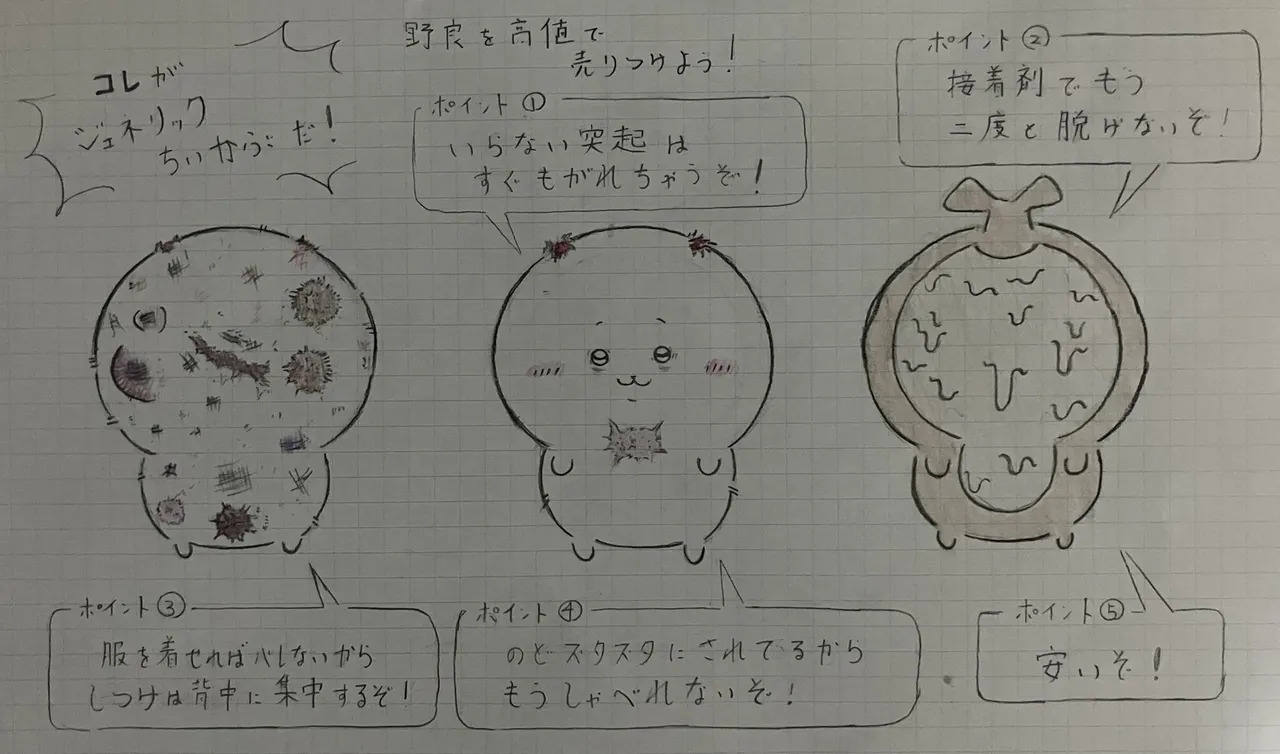 コレが
ジェネリック
ちいかぶだ！
野良を高値で
売りつけよう！
ポイント①
いらない突起は
すぐもがれちゃうぞ！
ポイント②
接着剤でもう
二度と脱げないぞ！
ポイント③
服を着せればバレないから
しつけは背中に集中するぞ！
ポイント④
のどズタズタにされてるから
もうしゃべれないぞ！
ポイント⑤
安いぞ！